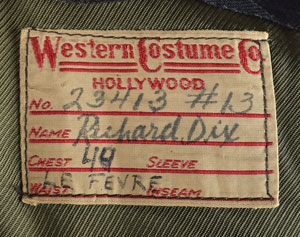 Western Costume Co
HOLLYWOOD
No. 23413 #13
NAME Richard Dix
CHEST 44 SLEEVE
LE FEVRE
WAIST INSEAM